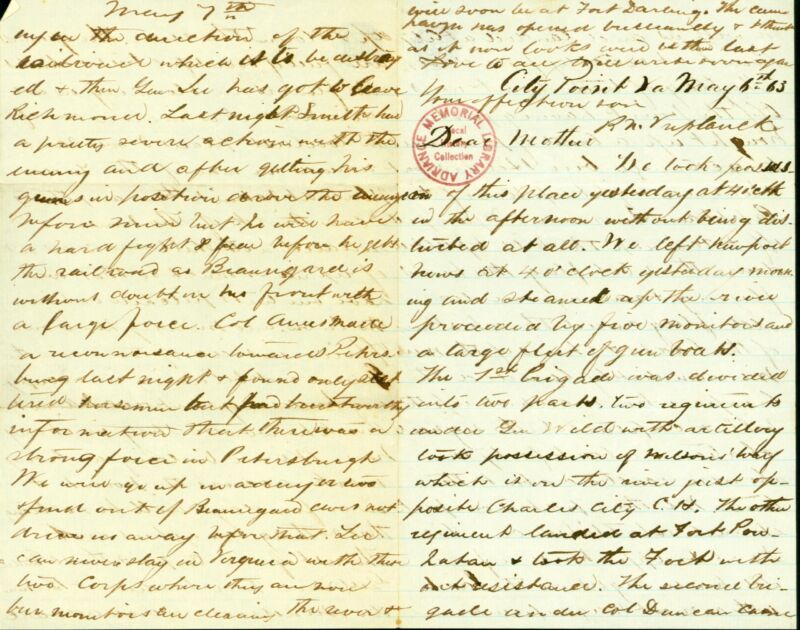 May 7th
my in the direction of the
railroad which is to be destroy
ed & then Gen Lee has got to leave
Richmond. Last night Smith had
a pretty severe action with the
enemy and after getting his
guns in position drove the enemy
before him but he will have
a hard fight I fear before he gets
the railroad as Beauregard is
without doubt in his front with
a large force. Col made
a reconnoisance towards Peters
burg last night & found only scat
tered horsemen but trustworthy
information that there was a
strong force in Petersburgh
We will go up in a day or two
& find out if Beauregard does not
drive us away before that. Lee
can never stay in Virginia with these
two Corps where they are now
Our monitors are clearing the river &
will soon be at Fort Darling. The cam
paign has opened brilliantly & I think
as it now looks will be the last
Love to all write soon again
Your affection son
R N Verplanck
City Point Va May 6th 63
Dear Mother
We took possess-
ion of this place yesterday at 4 o'clk
in the afternoon without being dis-
turbed at all. We left Newport
News at 4 o'clock yesterday morn-
ing and steamed up the river
proceeded by five monitors and
a large fleet of gun boats.
The 1st brigade was divided
into two parts. two regiments
under Gen Wild with artillery
took possession of Wilsons Warf
which is on the river just op-
posite Charles City C.H. The other
regiment landed at Fort Pow-
hatan & took the Fort with
out resistance. The second bri-
gade under Col Duncan came
ADRIANCE MEMORIAL LIBRARY
Local
History
Collection